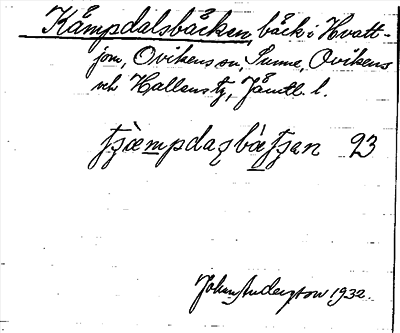 Kämpdalsbäcken, bäck i Hvatt-
jom, Ovikens sn, Sunne, Ovikens
och Hallens tg, Jämtl. l.
tʂæ̀mpdaʂbæ̀tʂan 23
John Anderzton 1932.